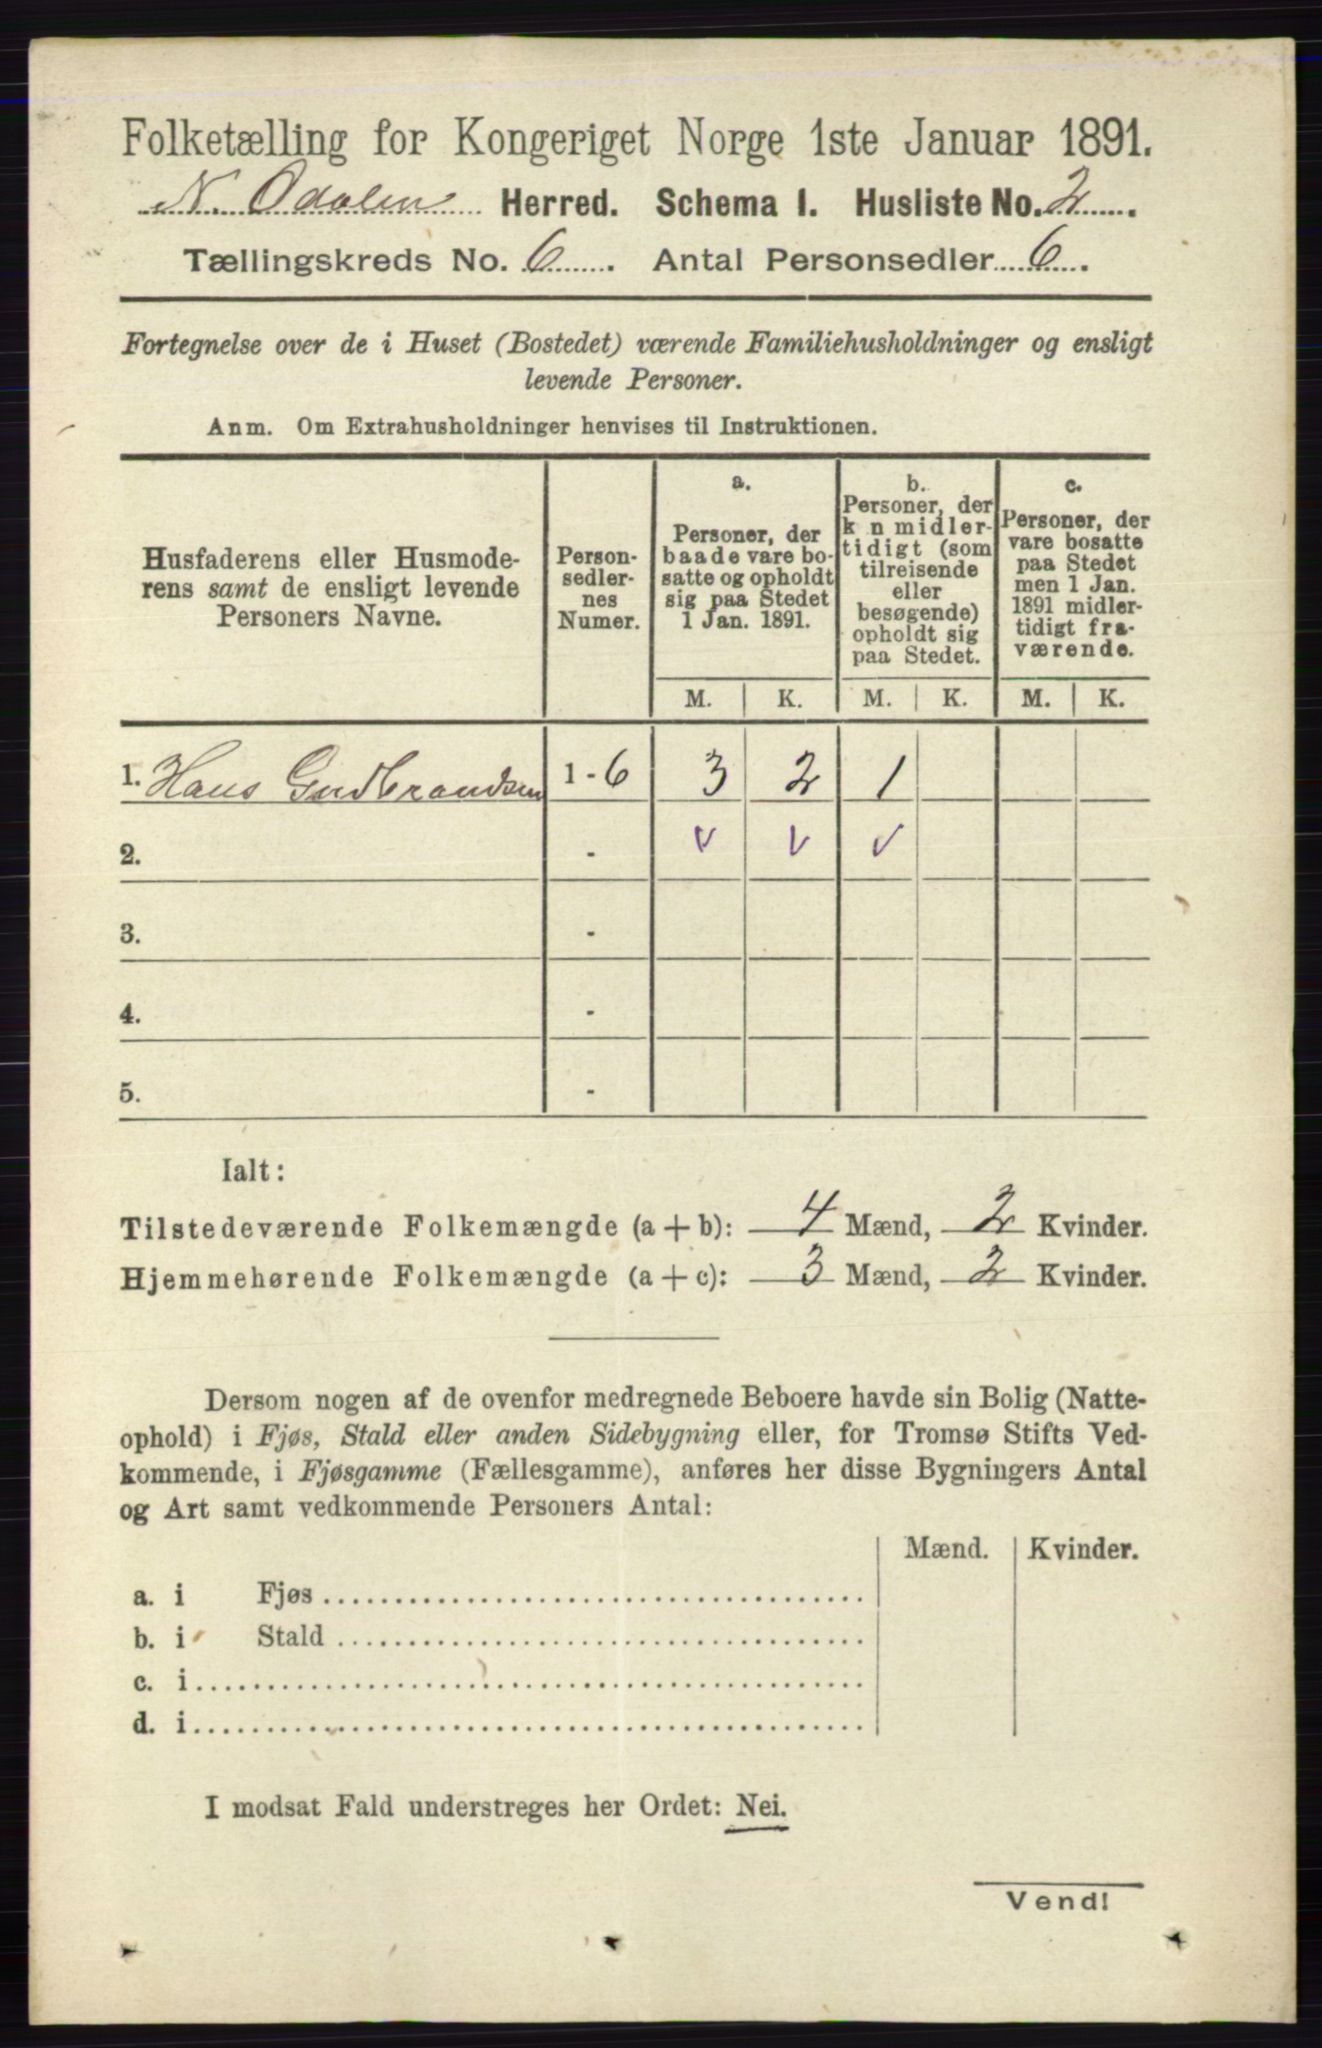 Folketælling for Kongeriget Norge 1ste Januar 1891.
N. Odalen Herred. Schema I. Husliste No. 2.
Tællingskreds No. 6. Antal Personsedler 6.
Fortegnelse over de i Huset (Bostedet) værende Familiehusholdninger og ensligt
levende Personer.
Anm. Om Extrahusholdninger henvises til Instruktionen.
Husfaderens eller Husmode-
rens samt de ensligt levende
Personers Navne.
Person-
sedler-
nes
Numer.
a.
Personer, der
baade vare bo-
satte og opholdt
sig paa Stedet
1 Jan. 1891.
b.
Personer, der
k n midler-
tidigt (som
tilreisende
eller
besøgende)
opholdt sig
paa Stedet.
c.
Personer, der
vare bosatte
paa Stedet
men 1 Jan.
1891 midler-
tidigt fra-
værende.
M. K. M. K. M. K.
1. Hans Gudbrandsen 1 - 6 3 2 1
2. - v v v
3. -
4. -
5. -
Ialt:
Tilstedeværende Folkemængde (a + b): 4 Mænd, 2 Kvinder.
Hjemmehørende Folkemængde (a + c): 3 Mænd, 2 Kvinder.
Dersom nogen af de ovenfor medregnede Beboere havde sin Bolig (Natte-
ophold) i Fjøs, Stald eller anden Sidebygning eller, for Tromsø Stifts Ved-
kommende, i Fjøsgamme (Fællesgamme), anføres her disse Bygningers Antal
og Art samt vedkommende Personers Antal:
Mænd. Kvinder.
a. i Fjøs
b. i Stald
c. i
d. i
I modsat Fald understreges her Ordet: Nei.
Vend!